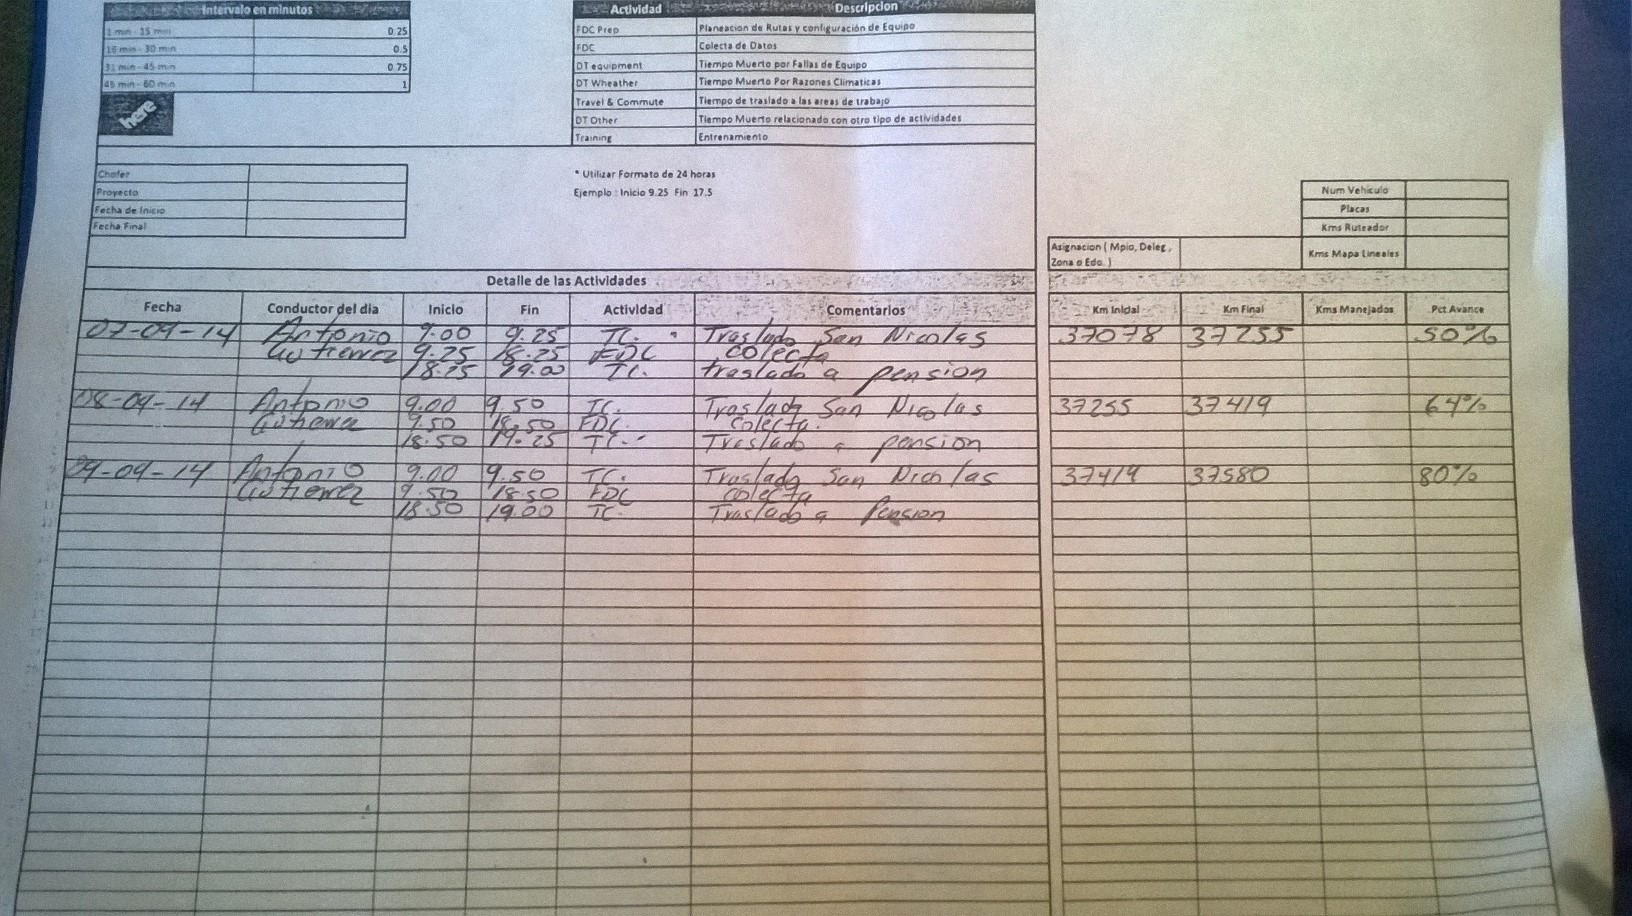 Intervalo en minutos
1 min - 15 min 0.25
16 min - 30 min 0.5
31 min - 45 min 0.75
45 min - 60 min 1
here
Actividad Descripcion
FDC Prep Planeacion de Rutas y configuración de Equipo
FDC Colecta de Datos
DT equipment Tiempo Muerto por Fallas de Equipo
DT Wheather Tiempo Muerto Por Razones Climaticas
Travel & Commute Tiempo de traslado a las areas de trabajo
DT Other Tiempo Muerto relacionado con otro tipo de actividades
Training Entrenamiento
Chofer
Proyecto
Fecha de Inicio
Fecha Final
* Utilizar Formato de 24 horas
Ejemplo : Inicio 9.25 Fin 17.5
Num Vehiculo
Placas
Kms Ruteador
Kms Mapa Lineales
Asignacion ( Mpio, Deleg ,
Zona o Edo. )
Detalle de las Actividades
Fecha Conductor del dia Inicio Fin Actividad Comentarios Km Inidal Km Final Kms Manejados Pct Avance
07-09-14 Antonio 9.00 9.25 TC. Traslado San Nicolas 37078 37255 50%
Gutierrez 9.25 18.25 FDC colecta
18.25 19.00 TC. traslado a pension
08-09-14 Antonio 9.00 9.50 TC. Traslado San Nicolas 37255 37419 64%
Gutierrez 9.50 18.50 FDC. colecta.
18.50 19.25 TC. Traslado a pension
09-09-14 Antonio 9.00 9.50 TC. Traslado San Nicolas 37419 37580 80%
Gutierrez 9.50 18.50 FDC colecta
18.50 19.00 TC. Traslado a Pension